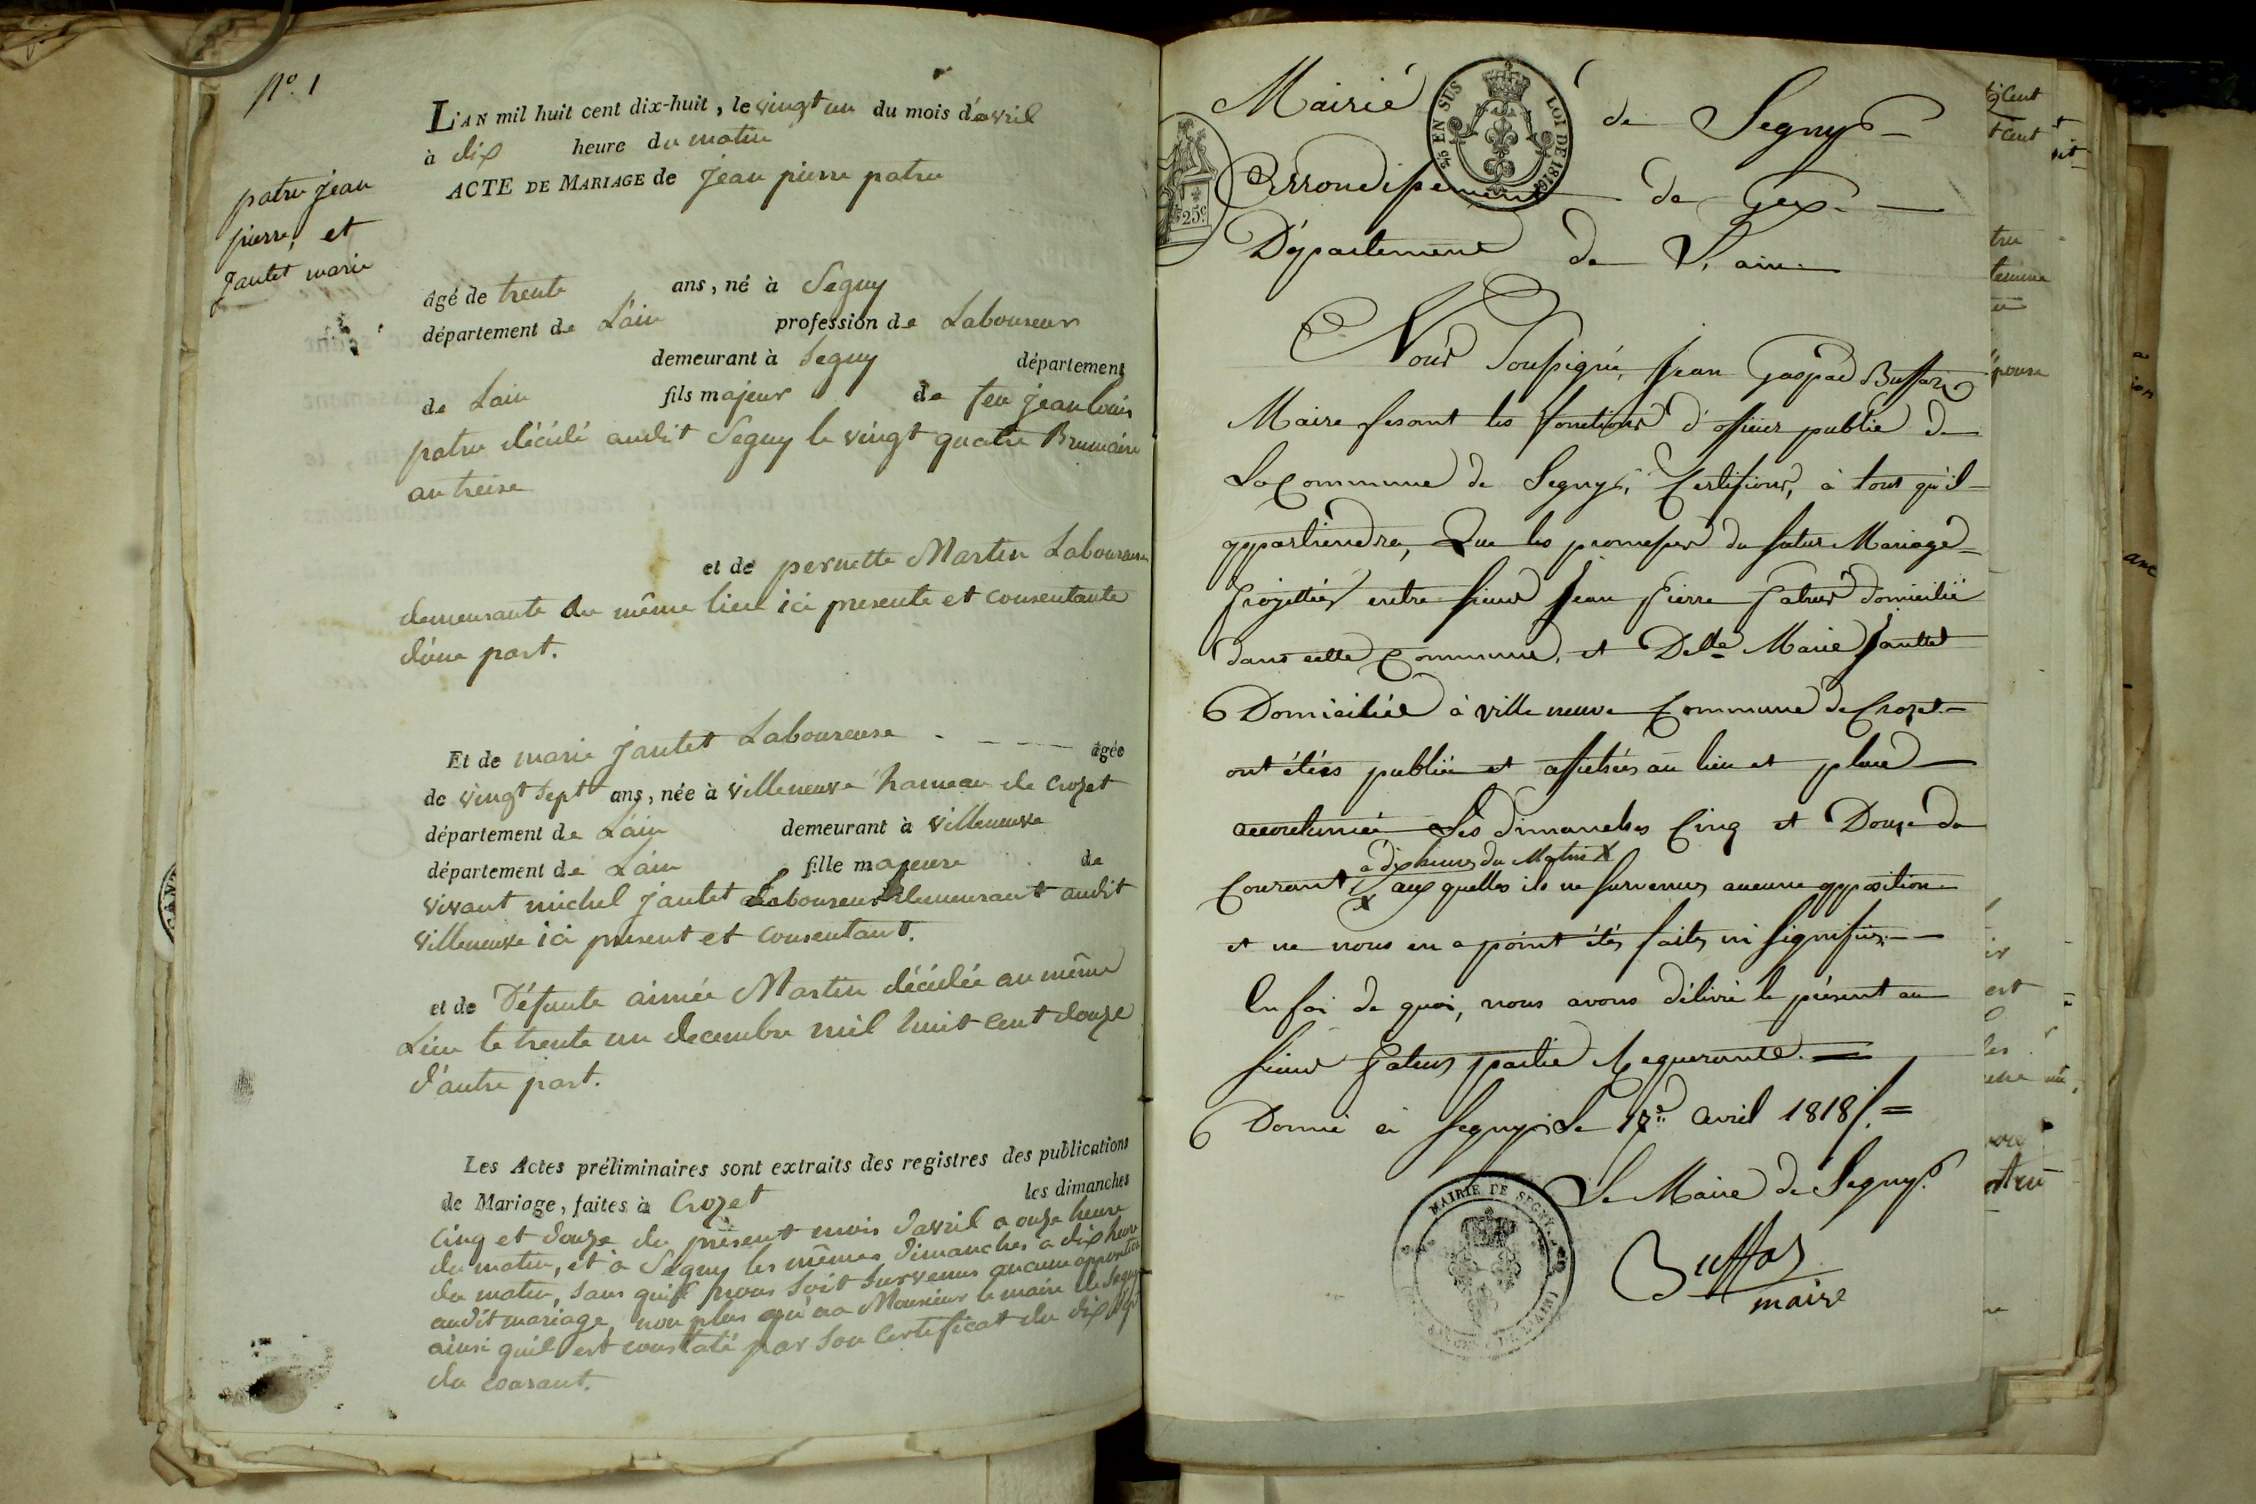 N.º 1
patru jean
pierre, et
jantet marie
L'AN mil huit cent dix-huit, le vingt un du mois d'avril
à dix heure du matin
ACTE DE MARIAGE de jean pierre patru
âgé de trente ans, né à Segny
département de L'ain profession de Laboureur
demeurant à Segny département
de Lain fils majeur de feu jean louis
patru décédé audit Segny le vingt quatre Brumaire
an treize
et de pernette Martin Laboureuse
demeurante du même lieu ici presente et consentante
d'une part.
Et de marie jantet Laboureuse âgée
de vingt sept ans, née à villeneuve hameau de Crozet
département de L'ain demeurant à villeneuve
département de Lain fille majeure de
vivant michel jantet Laboureur demeurant audit
villeneuve ici present et consentant.
et de Défunte aimée Martin décédée au même
Lieu le trente un decembre mil huit cent douze
d'autre part.
Les Actes préliminaires sont extraits des registres des publications
de Mariage, faites à Crozet les dimanches
Cinq et douze du présent mois d'avril a onze heure
du matin, et à Segny les mêmes dimanches a dix heure
du matin, sans qu'il nous soit survenus aucune opposition
audit mariage, non plus qu'aa Monsieur le maire de Segny
ainsi quil est constaté par son Certificat du dix sept
du courant.
Mairié de Segny
Arrondissement de Gex
Département de L'ain
EN SUS LOI DE 1816
25c
Nous Soussigné, Jean Gaspad Buffaz
Maire fesant les fonctions d'officier public de
La Commune de Segny, Certifions, à tous qu'il
appartiendra, Que les promesses du futur Mariage
projettées entre sieur Jean Pierre Patrus domicilié
dans cette Commune, et Delle Marie Jantet
Domiciliée à ville neuve Commune de Crozet
ont étées publiée et affichées au lieu et place
accoutumée Les dimanches Cinq et Douze du
à dix heures du Matin X
Courant X aux quelles ils ne survenus aucune opposition
et ne nous en a point étés faites ni signifiés
En foi de quoi, nous avons délivré le présent au
sieur Patrus partie Requerante.
Donné à Segny Le 17e avril 1818
Le Maire de Segny
MAIRIE DE SEGNY
Buffaz
maire